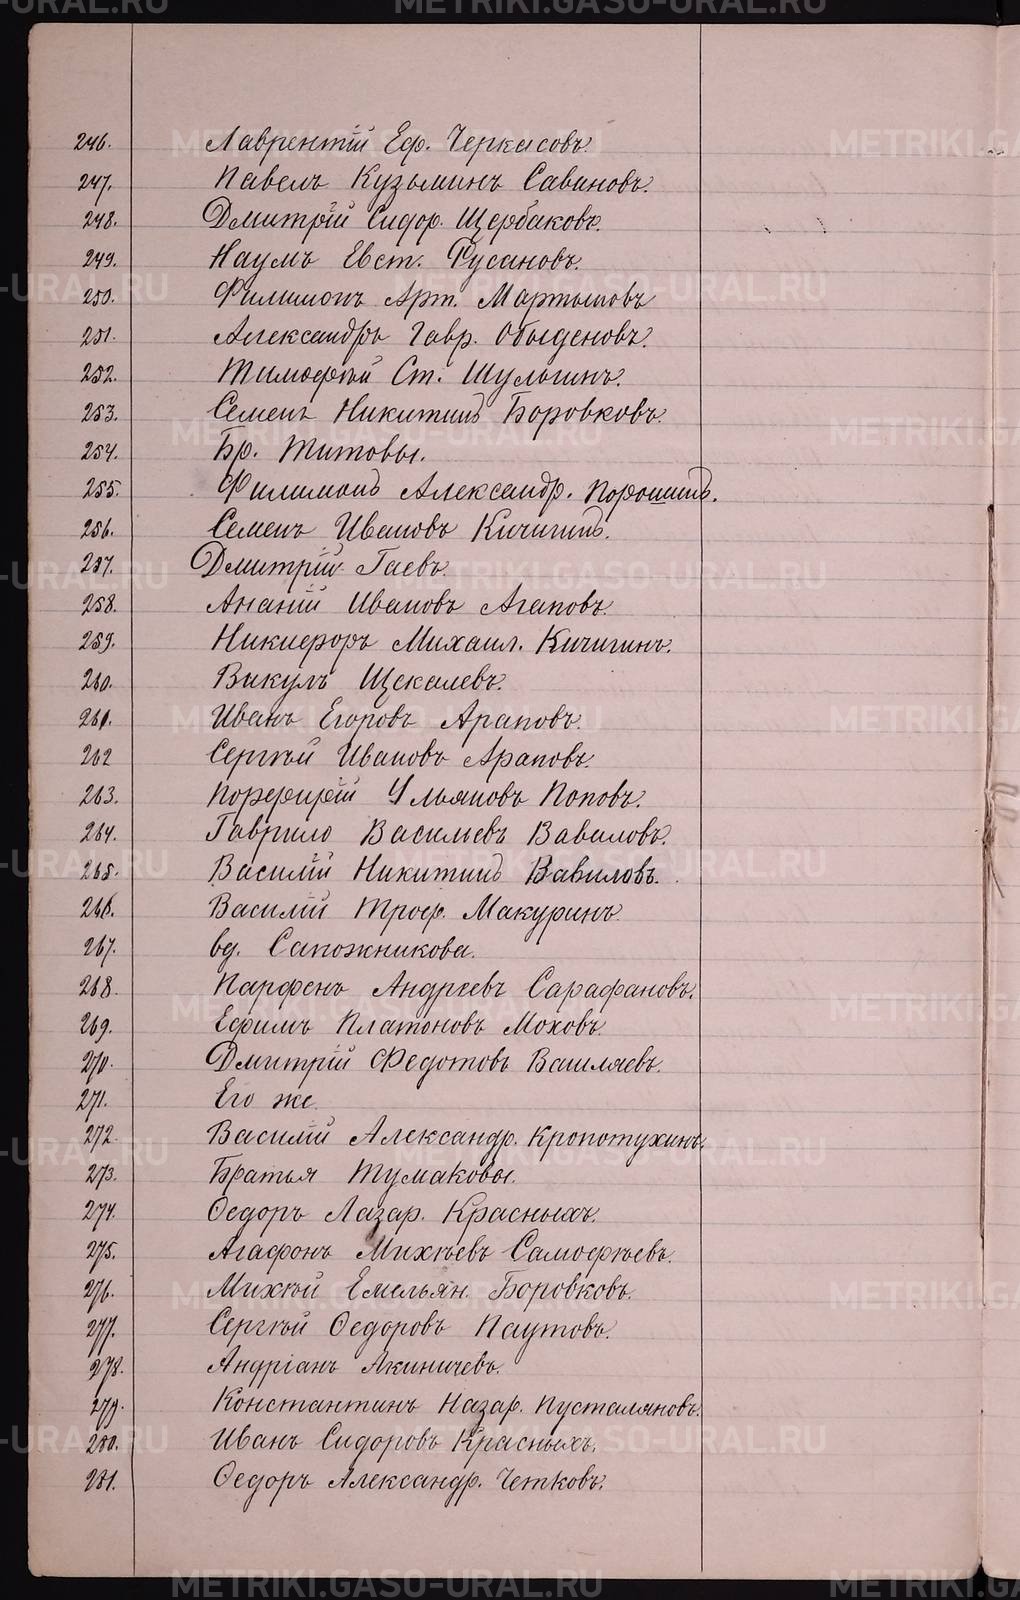 METRIKI.GASO-URAL.RU
246. Лаврентій Еф. Черкасовъ
247. Павелъ Кузьминъ Савиновъ.
248. Дмитрій Сидор. Щербаковъ.
249. Наумъ Евст. Русановъ.
250. Филимонъ Арт. Мартышовъ
251. Александръ Гавр. Обыденовъ.
252. Тимофѣй Ст. Шульгинъ.
253. Семенъ Никитинъ Боровковъ.
254. Бр. Титовы.
255. Филимонъ Александр. Порошинъ.
256. Семенъ Ивановъ Кичигинъ.
257. Дмитрій Гаевъ.
258. Ананій Ивановъ Агаповъ.
259. Никифоръ Михаил. Кичигинъ.
260. Викулъ Щекалевъ.
261. Иванъ Егоровъ Араповъ.
262 Сергѣй Ивановъ Араповъ.
263. Порфирій Ульяновъ Поповъ.
264. Гаврило Васильевъ Вавиловъ.
265. Василій Никитинъ Вавиловъ.
266. Василій Троф. Макуринъ.
267. вд. Сапожникова.
268. Парфенъ Андреевъ Сарафановъ.
269. Ефимъ Платоновъ Моховъ.
270. Дмитрій Федотовъ Вашляевъ.
271. Его же.
272. Василій Александр. Кропотухинъ.
273. Братья Тумаковы.
274. Ѳедоръ Лазар. Красныхъ.
275. Агафонъ Михѣевъ Самофѣевъ.
276. Михѣй Емельян. Боровковъ.
277. Сергѣй Ѳедоровъ Паутовъ.
278. Андріанъ Акиничевъ.
279. Константинъ Назар. Пусталяновъ.
280. Иванъ Сидоровъ Красныхъ.
281. Ѳедоръ Александр. Четковъ.